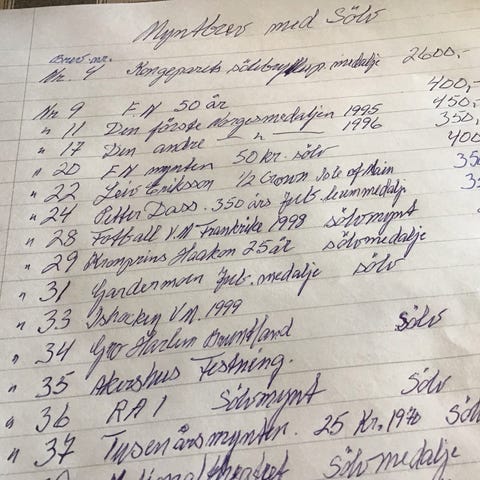 Myntbrev med Sölv
Brev nr.
Nr. 4 Kongeparets sölvbryllupp. medalje 2600,-
Nr 9 F.N 50 år 400,-
" 11 Den første Norgesmedaljen 1995 450,-
" 17 Den andre — " — 1996 350,
" 20 F.N mynten 50 kr. sölv 400
" 22 Leiv Eriksson 1/2 Crown Isle of Main 350
" 24 Petter Dass. 350 års jub.
" 28 Fotball V.M Frankrike 1998 sölvmynt
" 29 Kronprins Haakon 25 år sölvmedalje
" 31 Gardermoen jub. medalje sölv
" 33 Ishockey V.M. 1999
" 34 Gro Harlem Brundtland Sölv
" 35 Akershus Festning.
" 36 RA 1 Sölvmynt Sölv
" 37 Tusenårsmynten. 25 Kr. 1970 Söl
Nationaltheatret Sölvmedalje